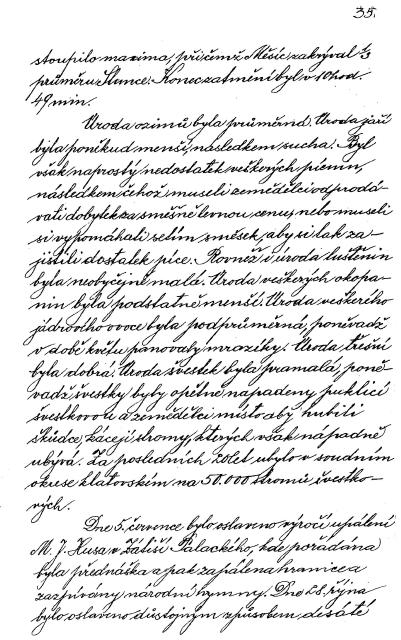 35.
stoupilo maxima, přičemž Měsíc zakrýval ⅓
průměru Slunce. Konec zatmění byl v 10 hod.
49 min.
Úroda ozimů byla průměrná. Úroda jaří
býla poněkud menší, následkem sucha. Byl
však naprostý nedostatek veškerých pícnin,
následkem čehož museli zemědělci odprodá-
vati dobytek za směšně levnou cenu, nebo museli
si vypomáhati setím směsek, aby si tak za-
jistili dostatek píce. Rovněž i úroda luštěnin
byla neobyčejně malá. Úroda veškerých okopa-
nin byla podstatně menší. Úroda veškerého
jádrového ovoce byla podprůměrná, poněvadž
v době květu panovaly mrazíky. Úroda třešní
byla dobrá. Úroda švestek byla pramalá, poně-
vadž švestky byly opětně napadeny puklicí
švestkovou a zemědělci místo aby hubili
škůdce, kácejí stromy, kterých však nápadně
ubývá. Za posledních 20 let ubylo v soudním
okrese klatovském na 50.000 stromů švestko-
vých.
Dne 5. července bylo oslaveno výročí upálení
M. J. Husa v Zátiší Palackého, kde pořádána
byla přednáška a pak zapálena hranice a
zazpívány národní hymny. Dne 28. října
bylo oslaveno důstojným způsobem desáté